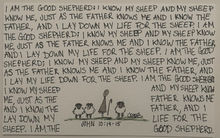 I AM THE GOOD SHEPHERD: I KNOW MY SHEEP AND MY SHEEP
KNOW ME, JUST AS THE FATHER KNOWS ME AND I KNOW THE
FATHER, AND I LAY DOWN MY LIFE FOR THE SHEEP. I AM
THE GOOD SHEPHERD: I KNOW MY SHEEP AND MY SHEEP KNOW
ME, JUST AS THE FATHER KNOWS ME AND I KNOW THE FATHER,
AND I LAY DOWN MY LIFE FOR THE SHEEP. I AM THE GOOD
SHEPHERD: I KNOW MY SHEEP AND MY SHEEP KNOW ME, JUST
AS THE FATHER KNOWS ME AND I KNOW THE FATHER, AND I
LAY MY LIFE DOWN FOR THE SHEEP. I AM THE GOOD SHEPHERD
I KNOW MY SHEEP AND MY SHEEP KNOW
ME, JUST AS FATHER KNOWS
THE FATHER ME, AND I
KNOWS ME AND KNOW THE
I KNOW THE FATHER, AND I
LAY DOWN MY LIFE FOR THE
SHEEP. I AM THE GOOD SHEPHERD.
JOHN 10:14-15